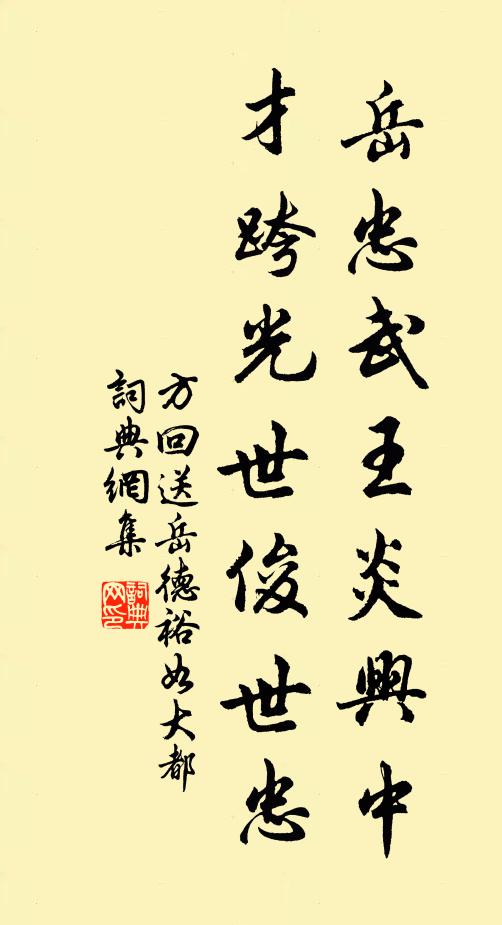 岳忠武王炎興中
才跨光世俊世忠
方回送岳德裕如大都
詞典網集
詞典
网印